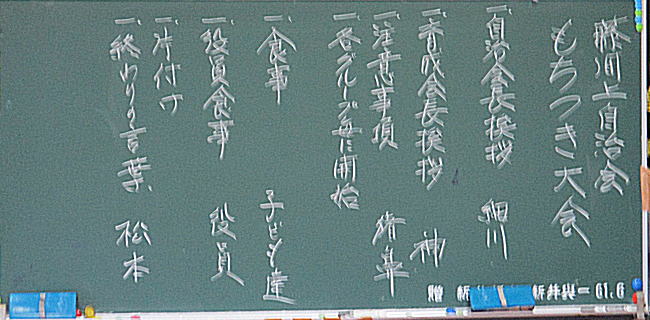 藤河上自治会
もちつき大会
一、自治会長挨拶 細川
一、育成会長挨拶 神
一、注意事項
一、各グループ毎に開始
一、食事 子ども達
一、役員食事 役員
一、片付け
一、終わりの言葉 松本
贈